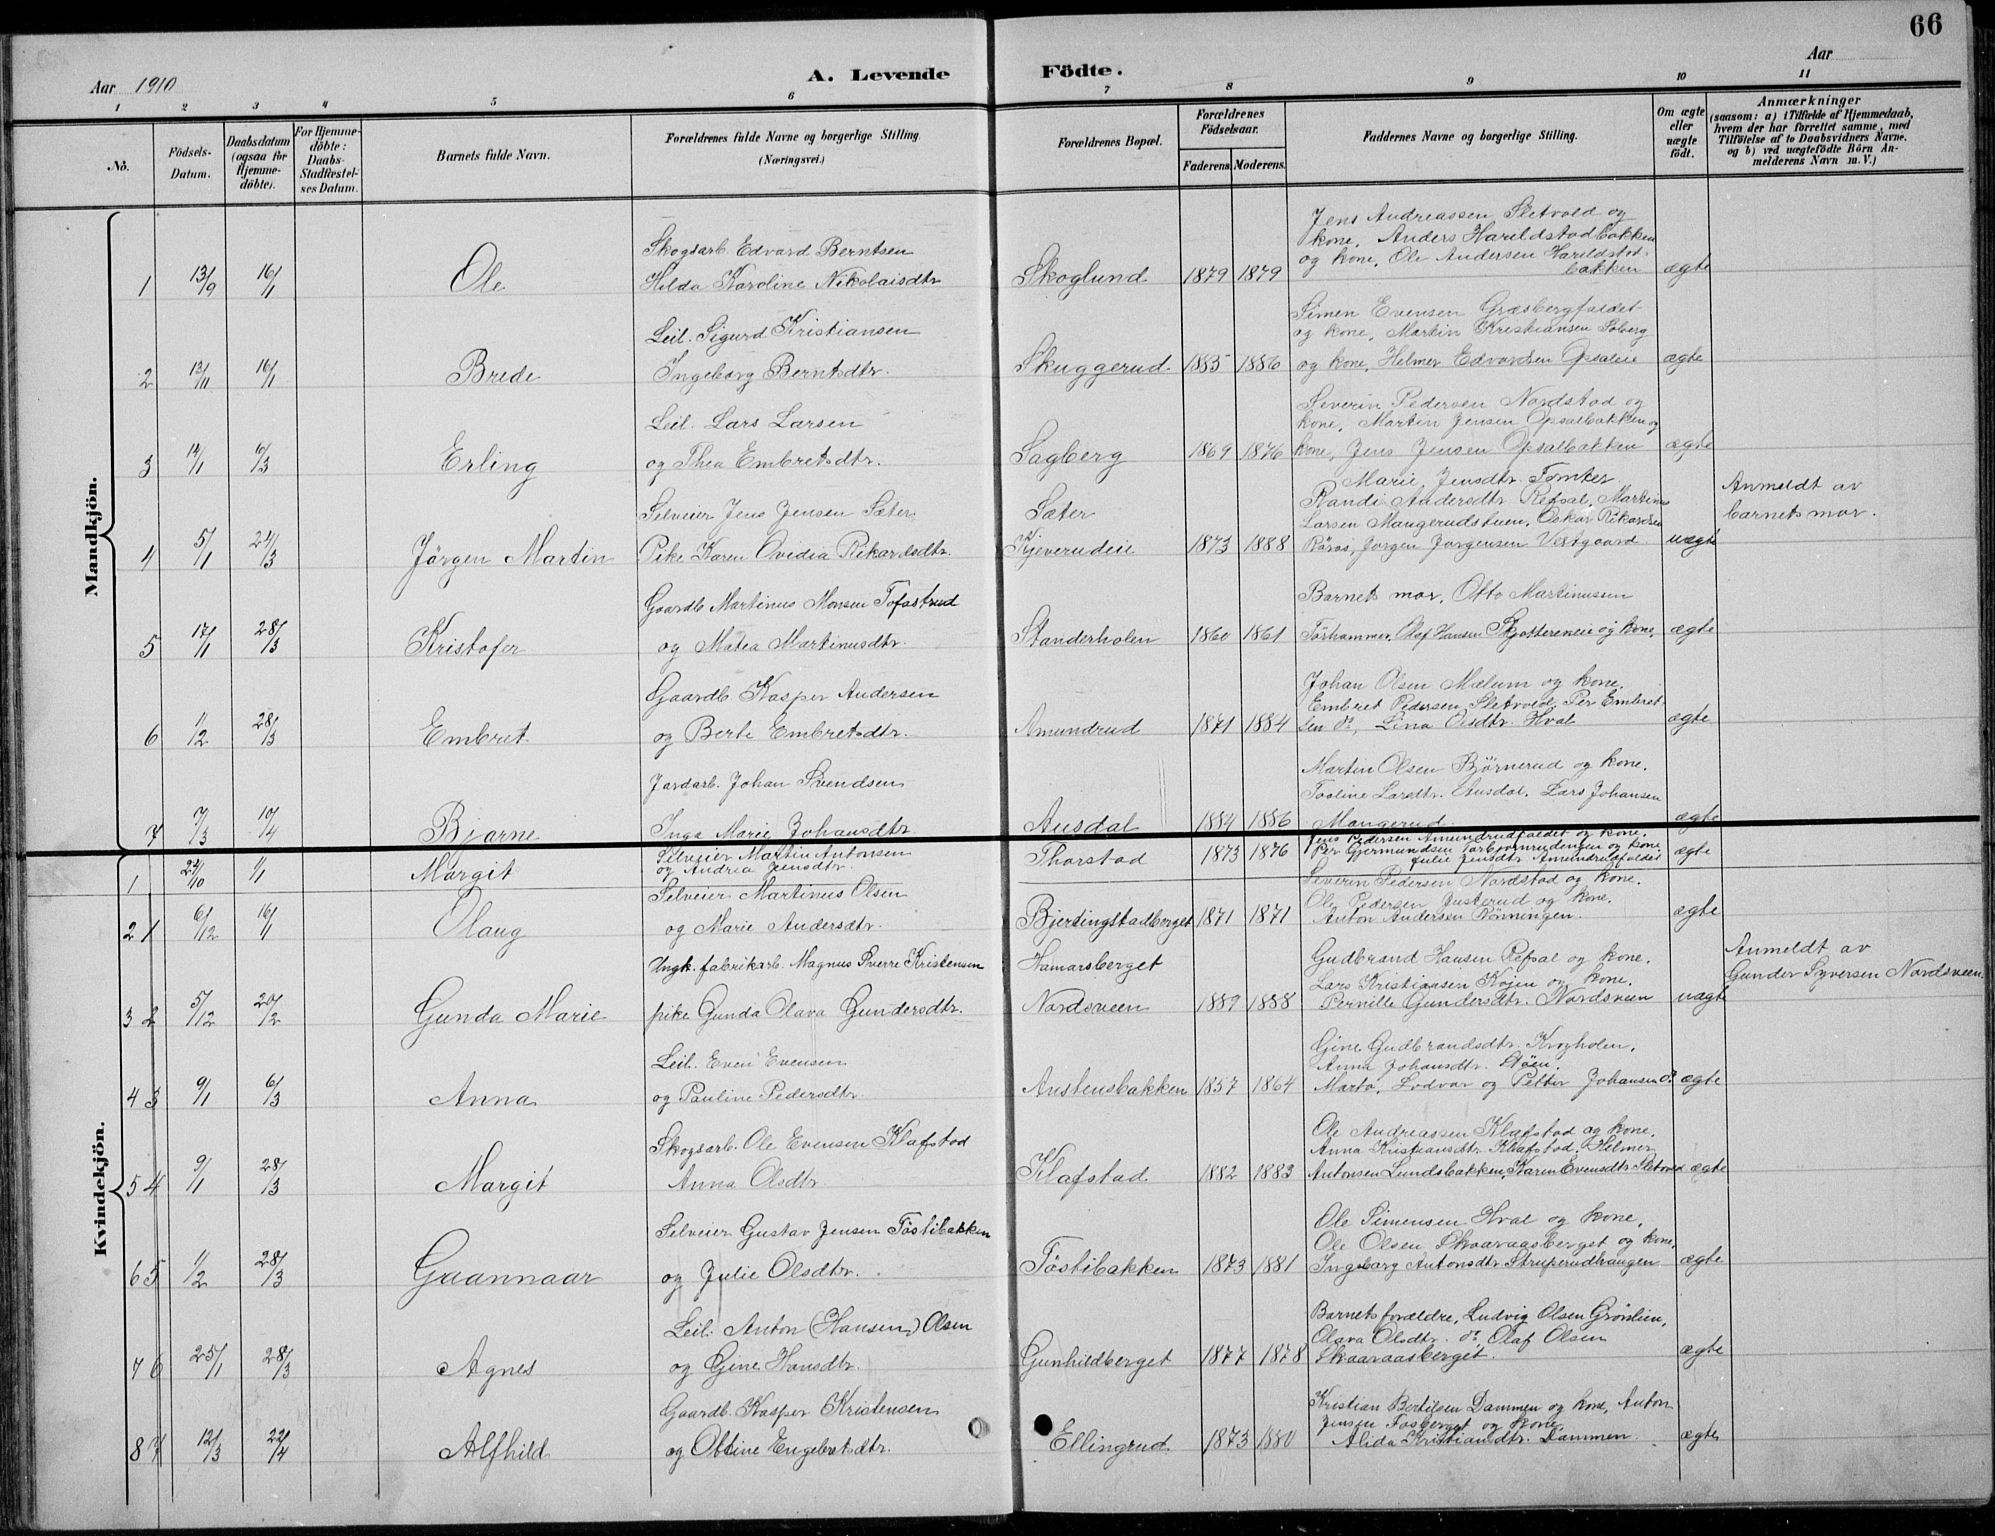 66
Aar 1910
A. Levende
Födte.
Aar
1 2 3 4 5 6 7 8 9 10 11
No.
Födsels-Datum.
Daabsdatum (ogsaa for Hjemme-döbte).
For Hjemme-döbte: Daabs-Stadfæstel-ses Datum.
Barnets fulde Navn.
Forældrenes fulde Navne og borgerlige Stilling. (Næringsvei.)
Forældrenes Bopæl.
Forældrenes Födselsaar.
Faderens. Moderens.
Faddernes Navne og borgerlige Stilling.
Om ægte eller uægte födt.
Anmærkninger
(saasom: a) i Tilfælde af Hjemmedaab, hvem der har forrettet samme, med Tilföielse af to Daabsvidners Navne. og b) ved uægtefödte Börn An-melderens Navn m. V.)
Mandkjön.
Skogsarb. Edvard Berntsen
Jens Andreassen Sletvold og
kone, Anders Hareldstadbakken
og kone, Ole Andersen Hareldstad-
bakken
1 13/9 16/1 Ole Hilda Karoline Nikolaisdtr. Skoglund 1879 1879 ægte
Leil. Sigurd Kristiansen
Simen Evensen Græsbergfaldet
og kone, Martin Kristiansen Soberg
2 13/11 16/1 Brede Ingeborg Berntsdtr. Skuggerud 1885 1886 og kone, Helmer Edvardsen Opsaleie ægte
Leil. Lars Larsen
Severin Pedersen Nordstad og
kone, Martin Jensen Opsalbakken og
3 14/1 6/3 Erling og Thea Embretsdtr. Sagberg 1869 1876 kone, Jens Jensen Opsalbakken ægte
Marie Jensdtr. Tomter.
Selveier Jens Jensen Sæter Sæter
Randi Andersdtr. Refsal, Martinus
Larsen Mangerudstuen, Oskar Rikardsen
Anmeldt av
barnets mor.
4 5/1 21/3 Jörgen Martin Pike Karen Ovidia Rikardsdtr. Kjeverudeie 1873 1888 Röros, Jörgen Jorgensen Vestgaard uægte
Gaardb. Martinus Monsen Tofastrud
Barnets mor, Otto Martinussen
5 17/1 28/3 Kristofer og Matea Martinusdtr. Standerholen 1860 1861 Torhammer, Olaf Hansen Skjottereneie og kone, ægte
Gaardb. Kasper Andersen
Johan Olsen Mælum og kone,
Embret Pedersen Sletvold, Per Embret-
6 1/2 28/3 Embret og Berte Embretsdtr. Amundrud 1871 1884 sen do, Lina Olsdtr. Hval ægte
Jordarb. Johan Svendsen
Martin Olsen Björnerud og kone.
Tooline Larsdtr. Ausdal, Lars Johansen
7 7/3 10/4 Bjarne Inga Marie Johansdtr. Ausdal 1884 1886 Mangerud ægte
Kvindekjön.
Selveier Martin Antonsen
Jens Pedersen Amundrudfaldet og kone.
1 23/10 1/1 Margit og Andrea Jensdtr. Thorstad 1873 1876 Per Gjermundsen Torbjornrudengen og kone, ægte
Julie Jensdtr. Amundrudfaldet
Selveier Martinus Olsen
Severin Pedersen Nordstad og kone.
Ole Pedersen Justerud og kone.
2 1 6/12 16/1 Olaug og Marie Andersdtr. Bjerdingstadberget 1871 1871 Anton Andersen Rönningen. ægte
Ungk. fabrikarb. Magnus Sverre Kristensen Hamarsberget
Gudbrand Hansen Refsal og kone.
Lars Kristiansen Kojen og kone.
Anmeldt av
Gunder Syversen Nordsveen
3 2 5/12 20/2 Gunda Marie pike Gunda Olava Gundersdtr. Nordsveen 1889 1888 Pernille Gundersdtr. Nordsveen uægte
Leil. Even Evensen
Gine Gudbrandsdtr. Krogholen,
Anna Johansdtr. Stöen.
4 3 9/1 6/3 Anna og Pauline Pedersdtr. Austensbakken 1857 1864 Marta, Lodvar og Petter Johansen do ægte
Skogsarb. Ole Evensen Klafstad
Ole Andreassen Klafstad og kone.
Anna Kristiansdtr. Klafstad, Helmer
5 4 9/1 28/3 Margit Anna Olsdtr. Klafstad 1882 1883 Antonsen Lundsbakken, Karen Evensdtr. Sletvold ægte
Selveier Gustav Jensen Töstibakken
Ole Simensen Hval og kone,
Ole Olsen Skvaraasberget og kone,
6 5 1/2 28/3 Gaannaar og Julie Olsdtr. Töstibakken 1873 1881 Ingeborg Antonsdtr. Struperudhaugen ægte
Leil. Anton (Hansen) Olsen
Barnets forældre, Ludvig Olsen Grönlien,
Olava Olsdtr. do. Olaf Olsen
7 6 25/1 28/3 Agnes og Gine Hansdtr. Gunhildberget 1877 1878 Skvaraasberget. ægte
Gaardb. Kasper Kristensen
Kristian Bertilsen Dammen og kone, Anton
Jensen Fosberget og kone
8 7 12/3 22/4 Alfhild og Ottine Engebretsdtr. Ellingrud 1873 1880 Alida Kristiansdtr. Dammen. ægte